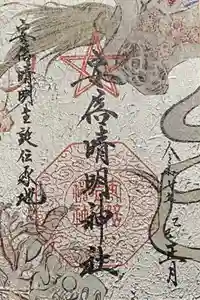 令和七年 乙巳 正月
安倍晴明神社
安倍晴明生誕伝承地